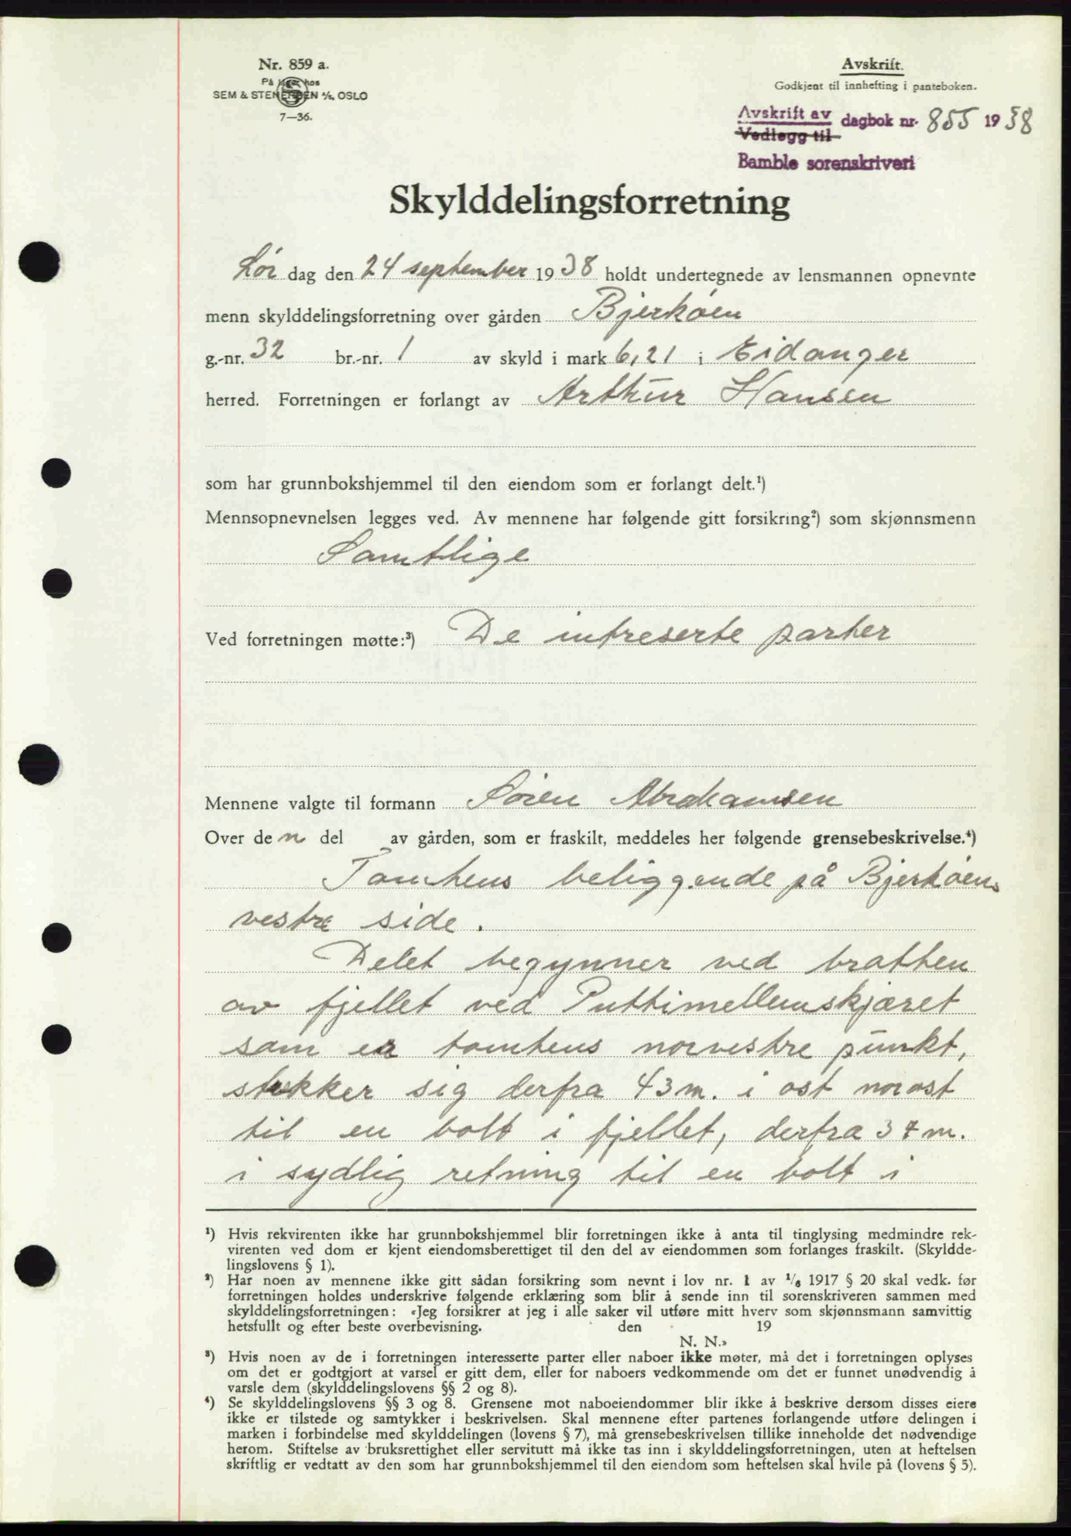 Nr. 859 a.
På lager hos
SEM & STENERSEN A/S, OSLO
7—36.
Avskrift.
Godkjent til innhefting i panteboken.
Avskrift av
Vedlegg til
dagbok nr. 855 1938
Bamble sorenskriveri
Skylddelingsforretning
Lør dag den 24 september 1938 holdt undertegnede av lensmannen opnevnte
menn skylddelingsforretning over gården Bjerkøen
g.-nr. 32 br.-nr. 1 av skyld i mark 6,21 i Eidanger
herred. Forretningen er forlangt av Arthur Hansen
som har grunnbokshjemmel til den eiendom som er forlangt delt.¹)
Mennsopnevnelsen legges ved. Av mennene har følgende gitt forsikring²) som skjønnsmenn
Samtlige
Ved forretningen møtte:³) De intreserte parter
Mennene valgte til formann Søren Abrahamsen
Over den del av gården, som er fraskilt, meddeles her følgende grensebeskrivelse.⁴)
Tomtens beliggende på Bjerkøens
vestre side.
Delet begynner ved bratten
av fjellet ved Puttimellemskjæret
som er tomtens norvestre punkt,
strekker sig derfra 43 m. i ost norost
til en bolt i fjellet, derfra 37 m.
i sydlig retning til en bolt i
¹) Hvis rekvirenten ikke har grunnbokshjemmel blir forretningen ikke å anta til tinglysing medmindre rek-
virenten ved dom er kjent eiendomsberettiget til den del av eiendommen som forlanges fraskilt. (Skyldde-
lingslovens § 1).
²) Har noen av mennene ikke gitt sådan forsikring som nevnt i lov nr. 1 av 1/6 1917 § 20 skal vedk. før
forretningen holdes underskrive følgende erklæring som blir å sende inn til sorenskriveren sammen med
skylddelingsforretningen: «Jeg forsikrer at jeg i alle saker vil utføre mitt hverv som skjønnsmann samvittig
hetsfullt og efter beste overbevisning. den 19
N. N.»
³) Hvis noen av de i forretningen interesserte parter eller naboer ikke møter, må det i forretningen oplyses
om det er godtgjort at varsel er gitt dem, eller for naboers vedkommende om det er funnet unødvendig å
varsle dem (skylddelingslovens §§ 2 og 8).
⁴) Se skylddelingslovens §§ 3 og 8. Grensene mot naboeiendommer blir ikke å beskrive dersom disses eiere
ikke er tilstede og samtykker i beskrivelsen. Skal mennene efter partenes forlangende utføre delingen i
marken i forbindelse med skylddelingen (lovens § 7), må grensebeskrivelsen tillike inneholde det nødvendige
herom. Stiftelse av bruksrettighet eller servitutt må ikke tas inn i skylddelingsforretningen, uten at heftelsen
skriftlig er vedtatt av den som har grunnbokshjemmel til den eiendom som heftelsen skal hvile på (lovens § 5).